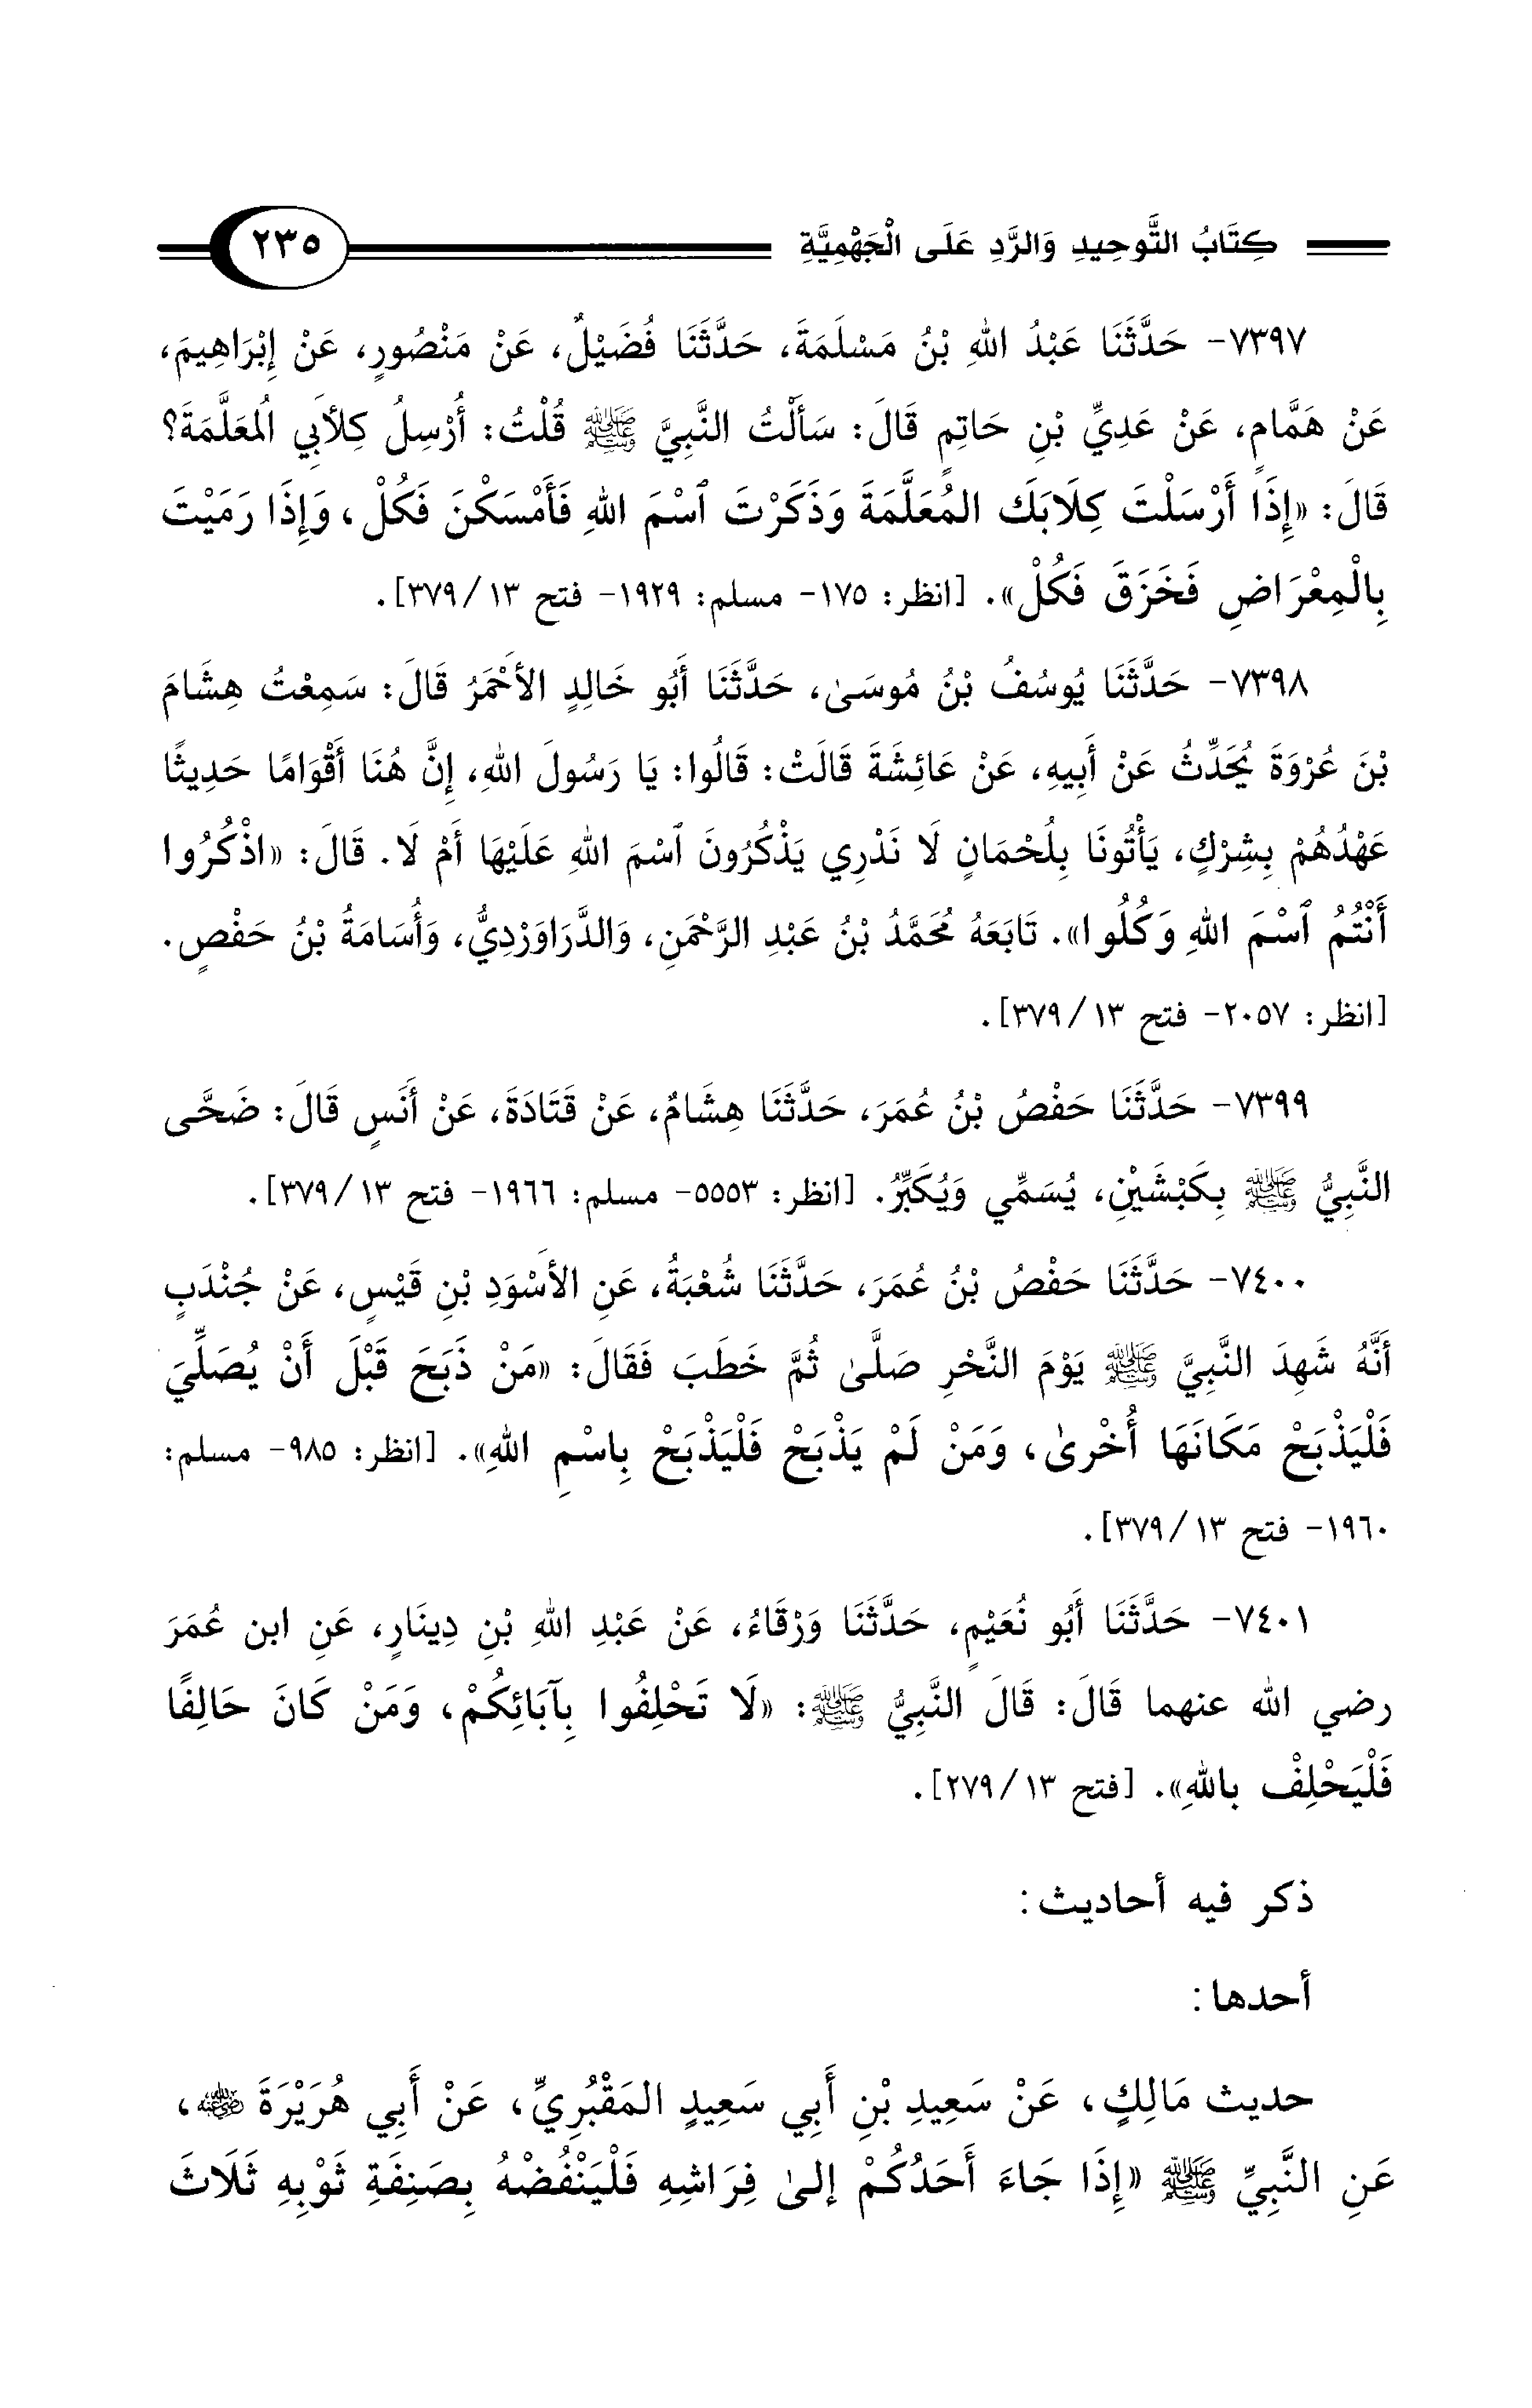 كِتَابُ التَّوحِيدِ وَالرَّدِ عَلَى الْجَهْمِيَّةِ ٢٣٥
٧٣٩٧- حَدَّثَنَا عَبْدُ اللهِ بْنُ مَسْلَمَةَ، حَدَّثَنَا فُضَيْلٌ، عَنْ مَنْصُورٍ، عَنْ إِبْرَاهِيمَ،
عَنْ هَمَّامٍ، عَنْ عَدِيِّ بْنِ حَاتِمٍ قَالَ: سَأَلْتُ النَّبِيَّ ﷺ قُلْتُ: أُرْسِلُ كِلَابِي الُمعَلَّمَةَ؟
قَالَ: «إِذَا أَرْسَلْتَ كِلَابَكَ المُعَلَّمَةَ وَذَكَرْتَ ٱسْمَ اللهِ فَأَمْسَكْنَ فَكُلْ، وَإِذَا رَمَيْتَ
بِالْمِعْرَاضِ فَخَزَقَ فَكُلْ». [انظر: ١٧٥- مسلم: ١٩٢٩- فتح ١٣/ ٣٧٩].
٧٣٩٨- حَدَّثَنَا يُوسُفُ بْنُ مُوسَىٰ، حَدَّثَنَا أَبُو خَالِدٍ الأَحْمَرُ قَالَ: سَمِعْتُ هِشَامَ
بْنَ عُرْوَةَ يُحَدِّثُ عَنْ أَبِيهِ، عَنْ عَائِشَةَ قَالَتْ: قَالُوا: يَا رَسُولَ اللهِ، إِنَّ هُنَا أَقْوَامًا حَدِيثًا
عَهْدُهُمْ بِشِرْكٍ، يَأْتُونَا بِلُحْمَانٍ لَا نَدْرِي يَذْكُرُونَ ٱسْمَ اللهِ عَلَيْهَا أَمْ لَا. قَالَ: «اذْكُرُوا
أَنْتُمُ ٱسْمَ اللهِ وَكُلُوا». تَابَعَهُ مُحَمَّدُ بْنُ عَبْدِ الرَّحْمَنِ، وَالدَّرَاوَرْدِيُّ، وَأُسَامَةُ بْنُ حَفْصٍ.
[انظر: ٢٠٥٧- فتح ١٣/ ٣٧٩].
٧٣٩٩- حَدَّثَنَا حَفْصُ بْنُ عُمَرَ، حَدَّثَنَا هِشَامٌ، عَنْ قَتَادَةَ، عَنْ أَنَسٍ قَالَ: ضَحَّى
النَّبِيُّ ﷺ بِكَبْشَيْنِ، يُسَمِّي وَيُكَبِّرُ. [انظر: ٥٥٥٣- مسلم: ١٩٦٦- فتح ١٣/ ٣٧٩].
٧٤٠٠- حَدَّثَنَا حَفْصُ بْنُ عُمَرَ، حَدَّثَنَا شُعْبَةُ، عَنِ الأَسْوَدِ بْنِ قَيْسٍ، عَنْ جُنْدَبٍ
أَنَّهُ شَهِدَ النَّبِيَّ ﷺ يَوْمَ النَّحْرِ صَلَّىٰ ثُمَّ خَطَبَ فَقَالَ: «مَنْ ذَبَحَ قَبْلَ أَنْ يُصَلِّيَ
فَلْيَذْبَحْ مَكَانَهَا أُخْرىٰ، وَمَنْ لَمْ يَذْبَحْ فَلْيَذْبَحْ بِاسْمِ اللهِ». [انظر: ٩٨٥- مسلم:
١٩٦٠- فتح ١٣/ ٣٧٩].
٧٤٠١- حَدَّثَنَا أَبُو نُعَيْمٍ، حَدَّثَنَا وَرْقَاءُ، عَنْ عَبْدِ اللهِ بْنِ دِينَارٍ، عَنِ ابن عُمَرَ
رضي الله عنهما قَالَ: قَالَ النَّبِيُّ ﷺ: «لَا تَحْلِفُوا بِآبَائِكُمْ، وَمَنْ كَانَ حَالِفًا
فَلْيَحْلِفْ باللهِ». [فتح ١٣/ ٢٧٩].
ذكر فيه أحاديث:
أحدها:
حديث مَالِكٍ، عَنْ سَعِيدِ بْنِ أَبِي سَعِيدٍ المَقْبُرِيِّ، عَنْ أَبِي هُرَيْرَةَ رضي الله عنه،
عَنِ النَّبِيِّ ﷺ «إِذَا جَاءَ أَحَدُكُمْ إلىٰ فِرَاشِهِ فَلْيَنْفُضْهُ بِصَنِفَةِ ثَوْبِهِ ثَلَاثَ